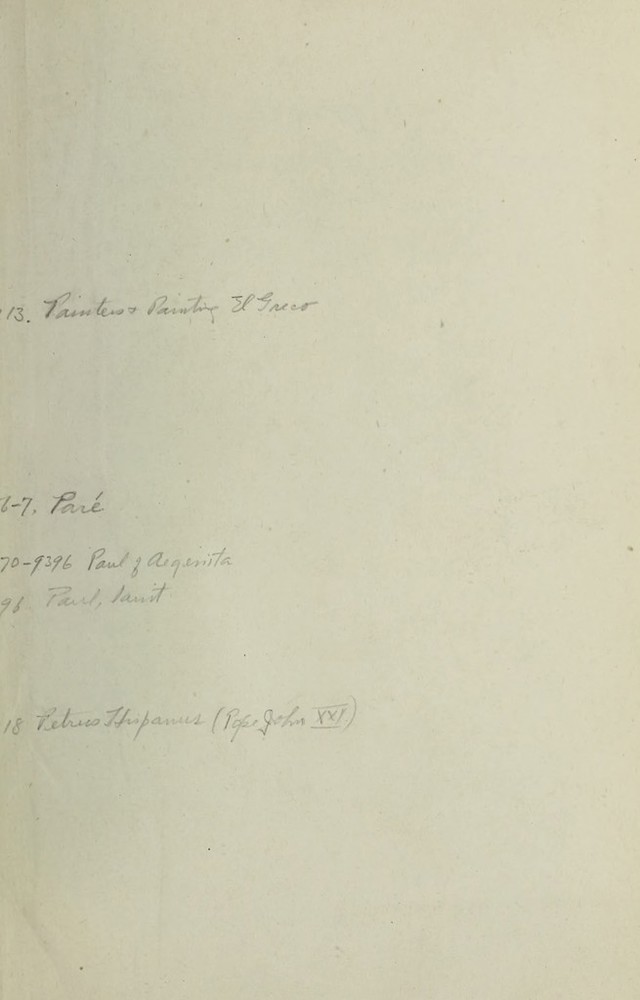 13. Painters & Painting El Greco
6-7. Paré
70-9396 Paul of Aegenita
96 Paul, Saint
18 Petrus Hispanus (Pope John XXI)